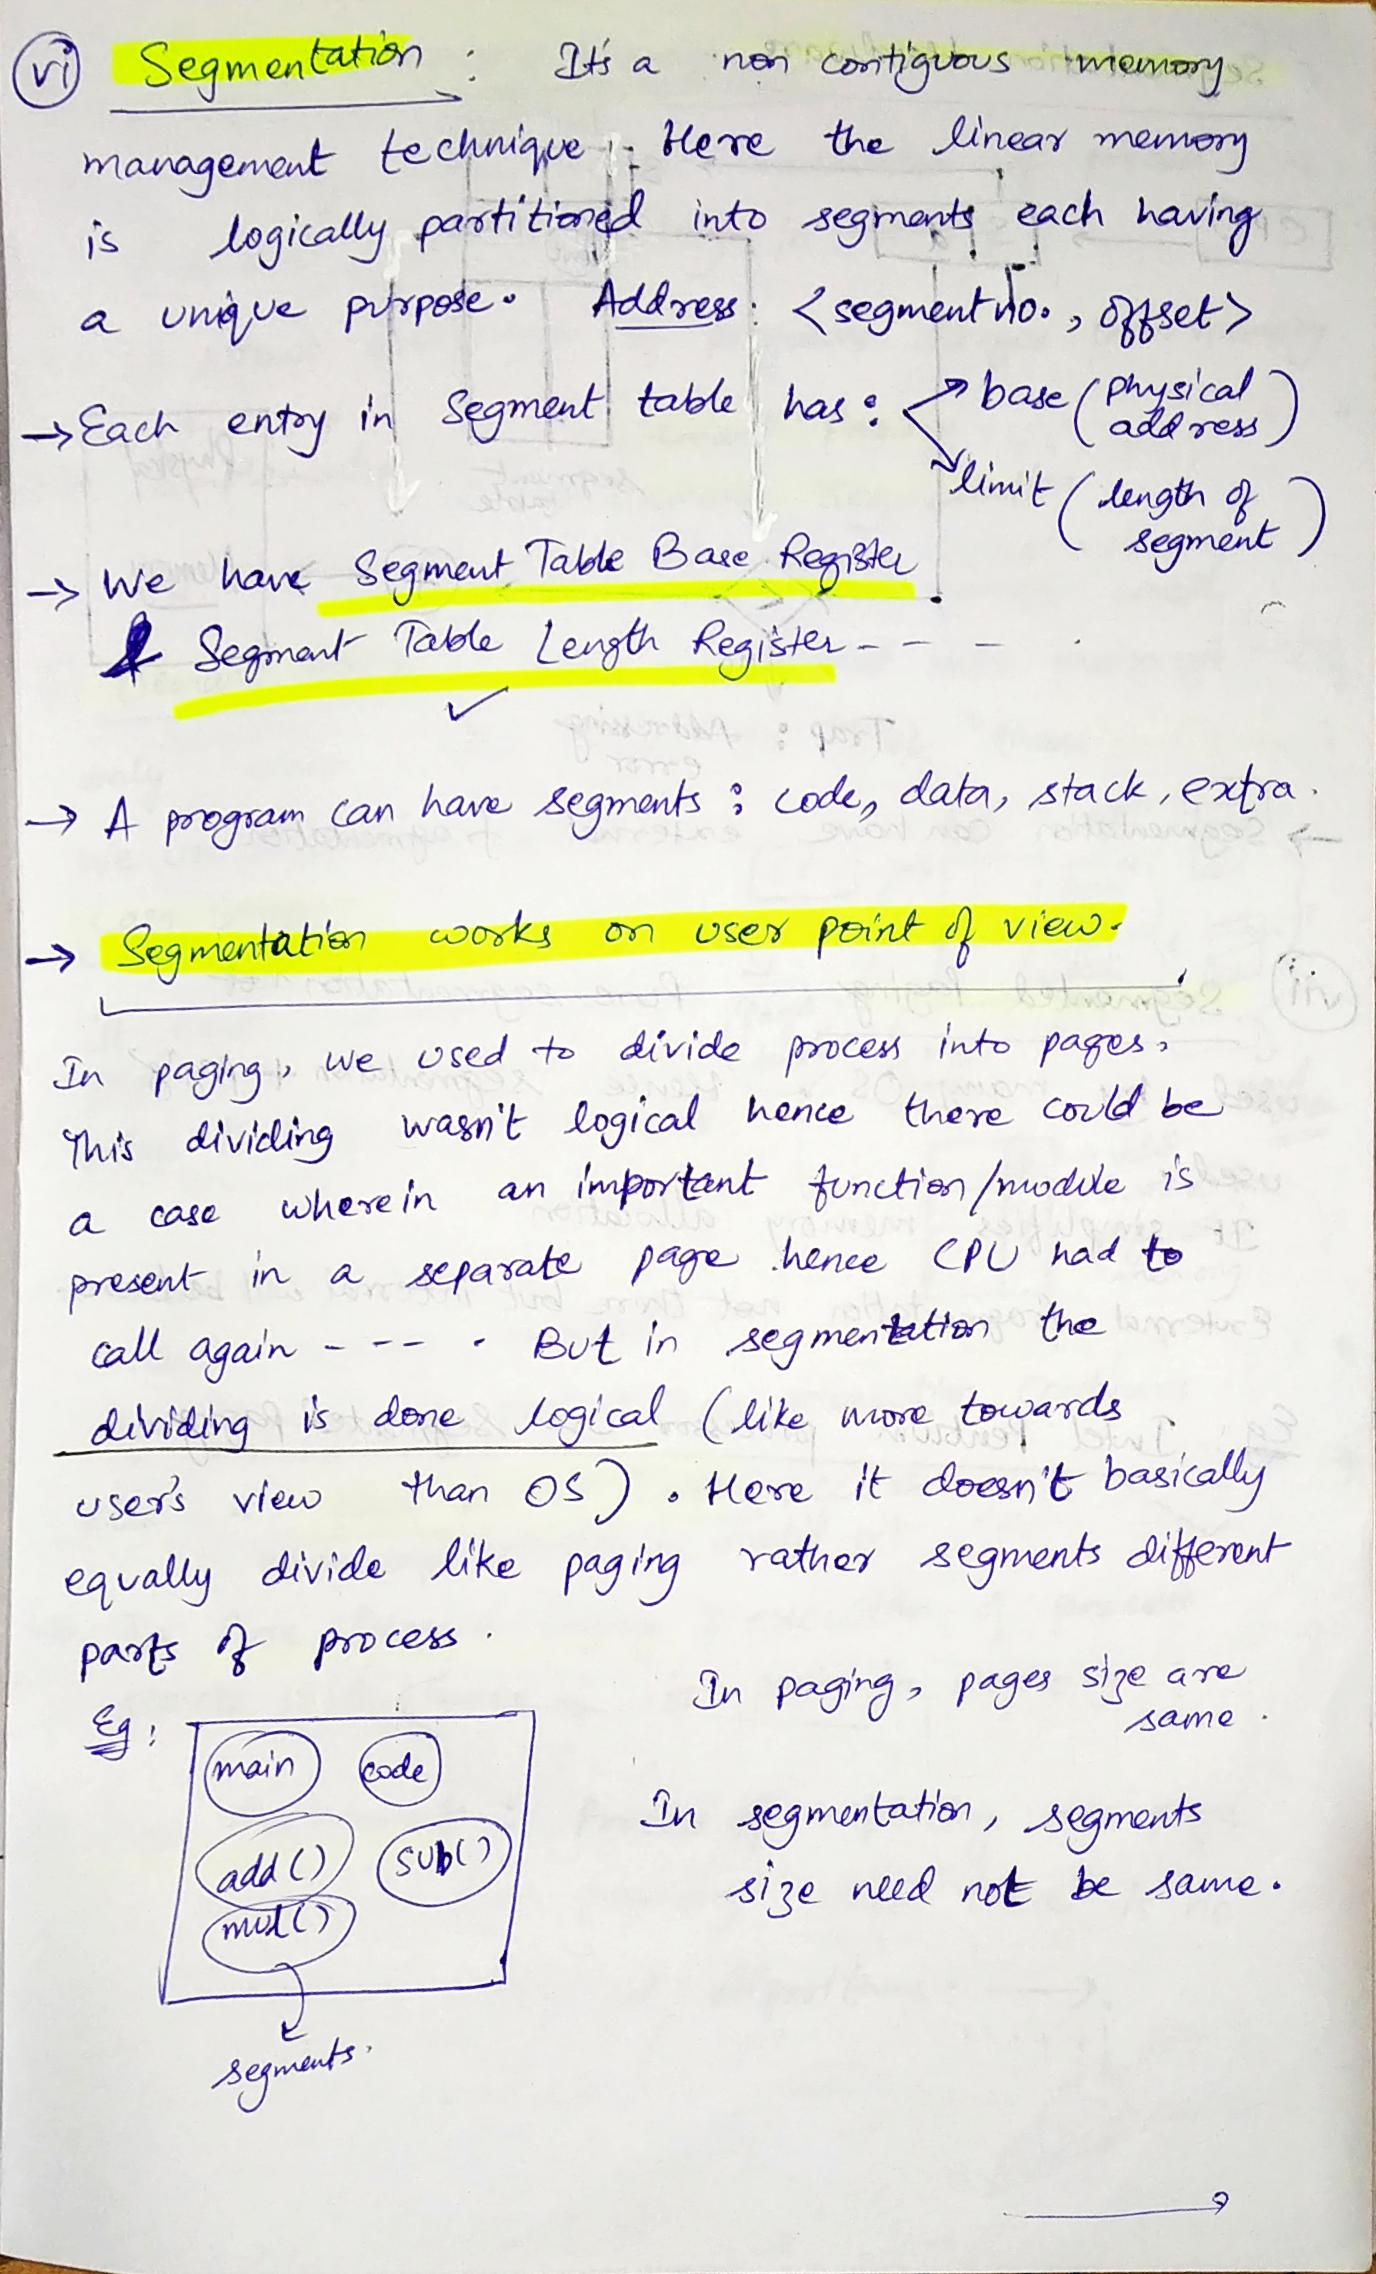 vi Segmentation : It's a non contiguous memory
management technique. Here the linear memory
is logically partitioned into segments each having
a unique purpose. Address: <segment no., offset>
→ Each entry in segment table has : base (physical address)
limit (length of segment)
→ We have Segment Table Base Register
& Segment Table Length Register - - - .
→ A program can have segments : code, data, stack, extra.
→ Segmentation works on user point of view.
In paging, we used to divide process into pages.
This dividing wasn't logical hence there could be
a case wherein an important function/module is
present in a separate page hence CPU had to
call again - - - . But in segmentation the
dividing is done logical (like more towards
user's view than OS). Here it doesn't basically
equally divide like paging rather segments different
parts of process.
Eg:
main code
add() sub()
mul()
segments.
In paging, pages size are
same.
In segmentation, segments
size need not be same.